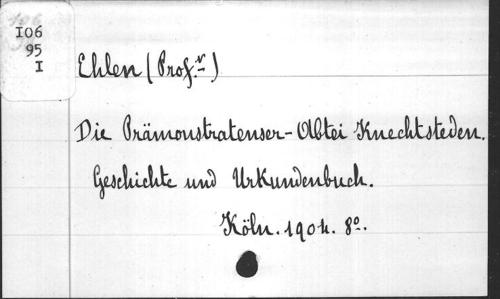 106
95
I
Ehlen (Prof.r)
Die Prämonstratenser-Abtei Knechtsteden.
Geschichte und Urkundenbuch.
Köln. 1904. 8o.